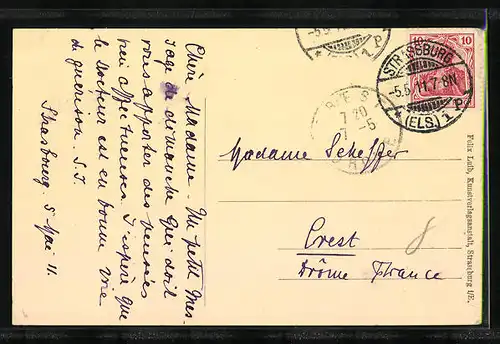 Chère Madame - Un petit mes-
sage du dimanche qui doit
vous apporter des pensées
affectueuses. J'espère que
le docteur est en bonne voie
de guérison. S.J.
Strasbourg 5 Mai 11.
Madame Scheffer
Crest
Drôme France
8
10 10
STRASSBURG
-5.5.11.7-8N
* (ELS) 1 P
-5.5.11
* 1 P
7 20
7 -5
Felix Luib, Kunstverlagsanstalt, Strassburg i/E.